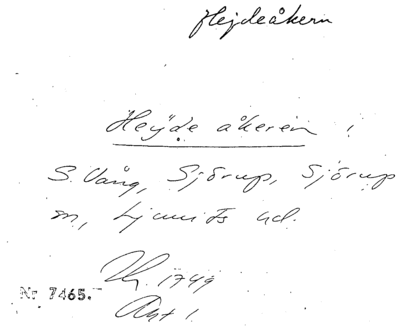 Hejdeåkern
Heÿde åkeren,
S. Vång, Sjörup, Sjörup
m, Ljunits hd.
1749
Nr 7465.
Akt 1.